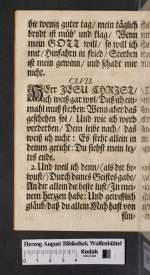 hie wenig guter tag/ mein täglich
brodt ist müh' und klag/ Wenn
mein GOTT will/ so will ich
mit/ Hinfahrn in fried/ Sterben
ist mein gewinn/ und schadt mir
nicht.
CLVII.
HErr JESU CHRIST/
Ich weiß gar wol/ Daß ich ein-
mahl muß sterben: Wenn aber daß
geschehen sol/ Und wie ich werd
verderben/ Dem leibe nach/ das
weiß ich nicht: Es steht allein in
deinem gericht: Du siehst mein letz-
tes ende.
2. Und weil ich denn/ (als dir be-
wust/) Durch deines Geistes gabe/
An dir allein die beste lust/ In mei-
nem hertzen habe: Und gewißlich
gläub/ daß du allein Mich hast von
sün-
Herzog August Bibliothek Wolfenbüttel